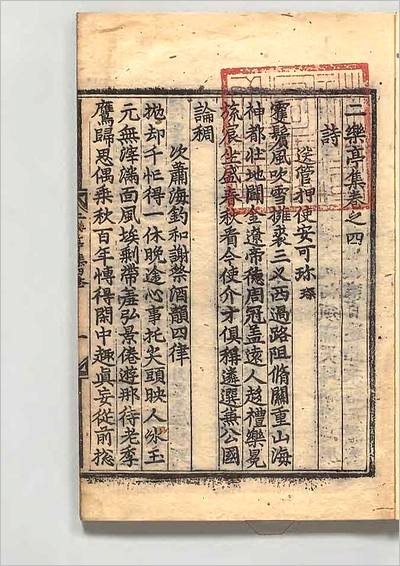 二樂亭集卷之四
詩
送管押使安可珎琛
鬢風吹雪擁裘三义西過路阻脩關重山海
神都壯地闢金遼帝德周冠盖遠人趍禮樂冕
旒坐盛春秋看今使介才俱稱遴選兼公國
論稠
次蕭海釣和謝祭酒韻四律
抛却千忙得一休晚途心事托尖頭映人氷玉
元無滓滿面風埃剩帶羞弘景倦遊那待老季
鷹歸思偶乗秋百年慱得閑中趣眞妄從前捴